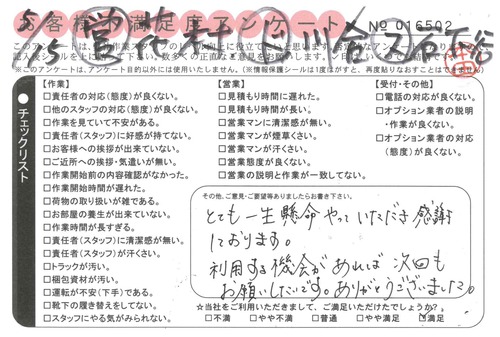 お客様 満足度アンケート
No 016502
5/15 営 (2)
※このアンケートは、アンケート目的以外には使用いたしません。(※情報保護シールは1度はがすと、再度貼りなおすことはできません)
チェックリスト
【作業】
□責任者の対応(態度)が良くない。
□他のスタッフの対応(態度)が良くない。
□作業を見ていて不安がある。
□責任者(スタッフ)に好感が持てない。
□お客様への挨拶が出来ていない。
□ご近所への挨拶・気遣いが無い。
□作業開始前の内容確認がなかった。
□作業開始時間が遅れた。
□荷物の取り扱いが雑である。
□お部屋の養生が出来ていない。
□作業時間が長すぎる。
□責任者(スタッフ)に清潔感が無い。
□責任者(スタッフ)が汗くさい。
□トラックが汚い。
□梱包資材が汚い。
□運転が不安(下手)である。
□靴下の履き替えをしてない。
□スタッフにやる気がみられない。
【営業】
□見積もり時間に遅れた。
□見積もり時間が長い。
□営業マンに清潔感が無い。
□営業マンが煙草くさい。
□営業マンが汗くさい。
□営業態度が良くない。
□営業の説明と作業が一致してない。
【受付・その他】
□電話の対応が良くない。
□オプション業者の説明
・作業が良くない。
□オプション業者の対応
(態度)が良くない。
その他、ご意見・ご要望等ありましたらお書き下さい。
とても一生懸命やっていただき感謝
しております。
利用する機会があれば次回も
お願いしたいです。ありがとうございました。
☆当社をご利用いただきまして、ご満足いただけたでしょうか?
□不満 □やや不満 □普通 □やや満足 □満足